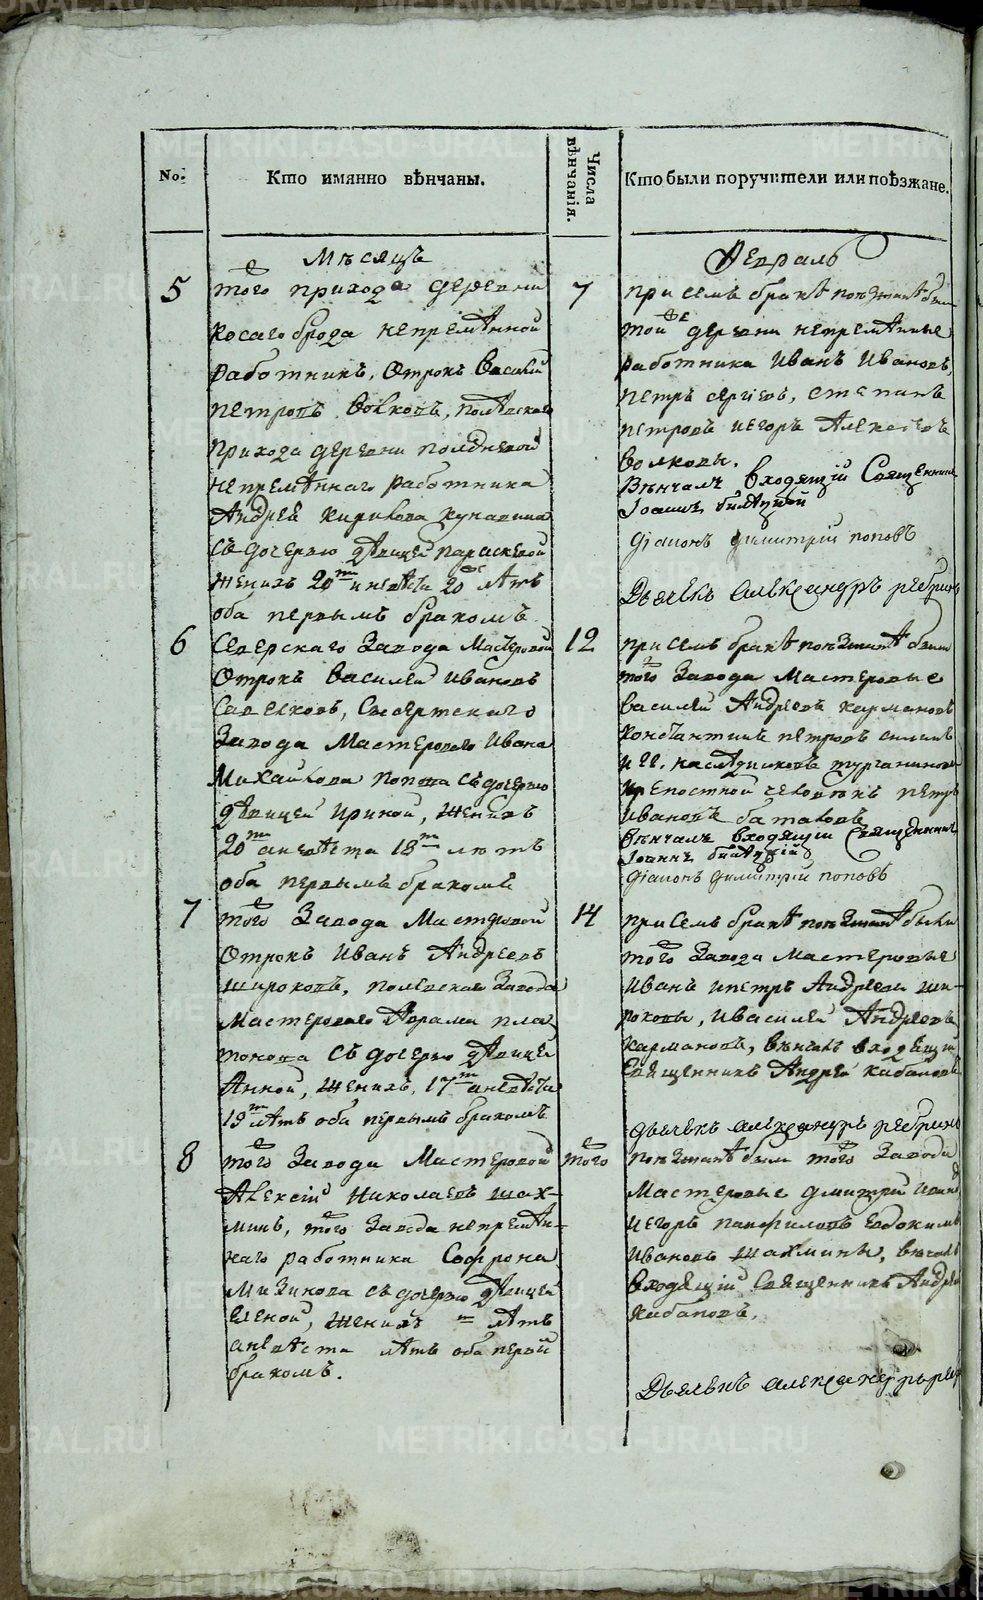 No.
Кто имянно вѣнчаны.
Числа вѣнчанія.
Кто были поручители или поѣзжане.
Мѣсяцъ
Февраль
5
того прихода деревни
косаго брода непремѣнной
работникъ, Отрокъ Василей
Петровъ Волковъ, полевскаго
прихода деревни полдневой
непремѣннаго работника
Андрея Кирилова
съ дочерью дѣвицей параскевой
женихъ 20 и невѣста 20 лѣтъ
оба первымъ бракомъ
7
при семъ бракѣ поезжанѣ были
той деревни непремѣнные
работника Иванъ Ивановъ,
петръ сергіевъ, степанъ
петровъ и егоръ Алексѣевъ
волковы.
Вѣнчалъ входящій Священникъ
Іоаннъ
діаконъ димитрій поповъ
Дьячекъ александръ ребринъ
6
Северскаго Завода Мастеровой
Отрокъ Василей Ивановъ
Савелковъ, Сысертскаго
Завода Мастероваго Ивана
Михайлова попова съ дочерью
дѣвицей Ириной, женихъ
20 а невѣста 18 лѣтъ
оба первымъ бракомъ
12
при семъ бракѣ поезжанѣ были
того Завода Мастеровые
василей Андреевъ кармановъ
константинъ петровъ
и гг. наслѣдниковъ турчанинова
крепостной человѣкъ петръ
Ивановъ баталовъ
Вѣнчалъ входящій Священникъ
Іоаннъ
діаконъ димитрій поповъ
7
того Завода Мастеровой
Отрокъ Иванъ Андреевъ
широковъ, полевскаго Завода
Мастероваго Аврама пла-
тонова съ дочерью дѣвицей
Анной, женихъ 17 а невѣста
19 лѣтъ оба первымъ бракомъ
14
при семъ бракѣ поезжанѣ были
того Завода Мастеровые
Иванъ и петръ Андреевы ши-
роковы, и василей Андреевъ
кармановъ, вѣнчалъ входящій
Священникъ Андрей кибановъ
дьячекъ александръ ребринъ
8
того Завода Мастеровой
Алексій Николаевъ шах-
минъ, того Завода непремѣн-
наго работника Софрона
Мизинова съ дочерью дѣвицей
Еленой, женихъ лѣтъ
а невѣста лѣтъ оба первымъ
бракомъ.
того
поезжанѣ были того Завода
Мастеровые дмитрий Ивановъ
и егоръ панфиловъ евдокимъ
Ивановъ шахмины, вѣнчалъ
входящій Священникъ Андрей
кибановъ.
Дьячекъ александръ
METRIKI.GASO-URAL.RU